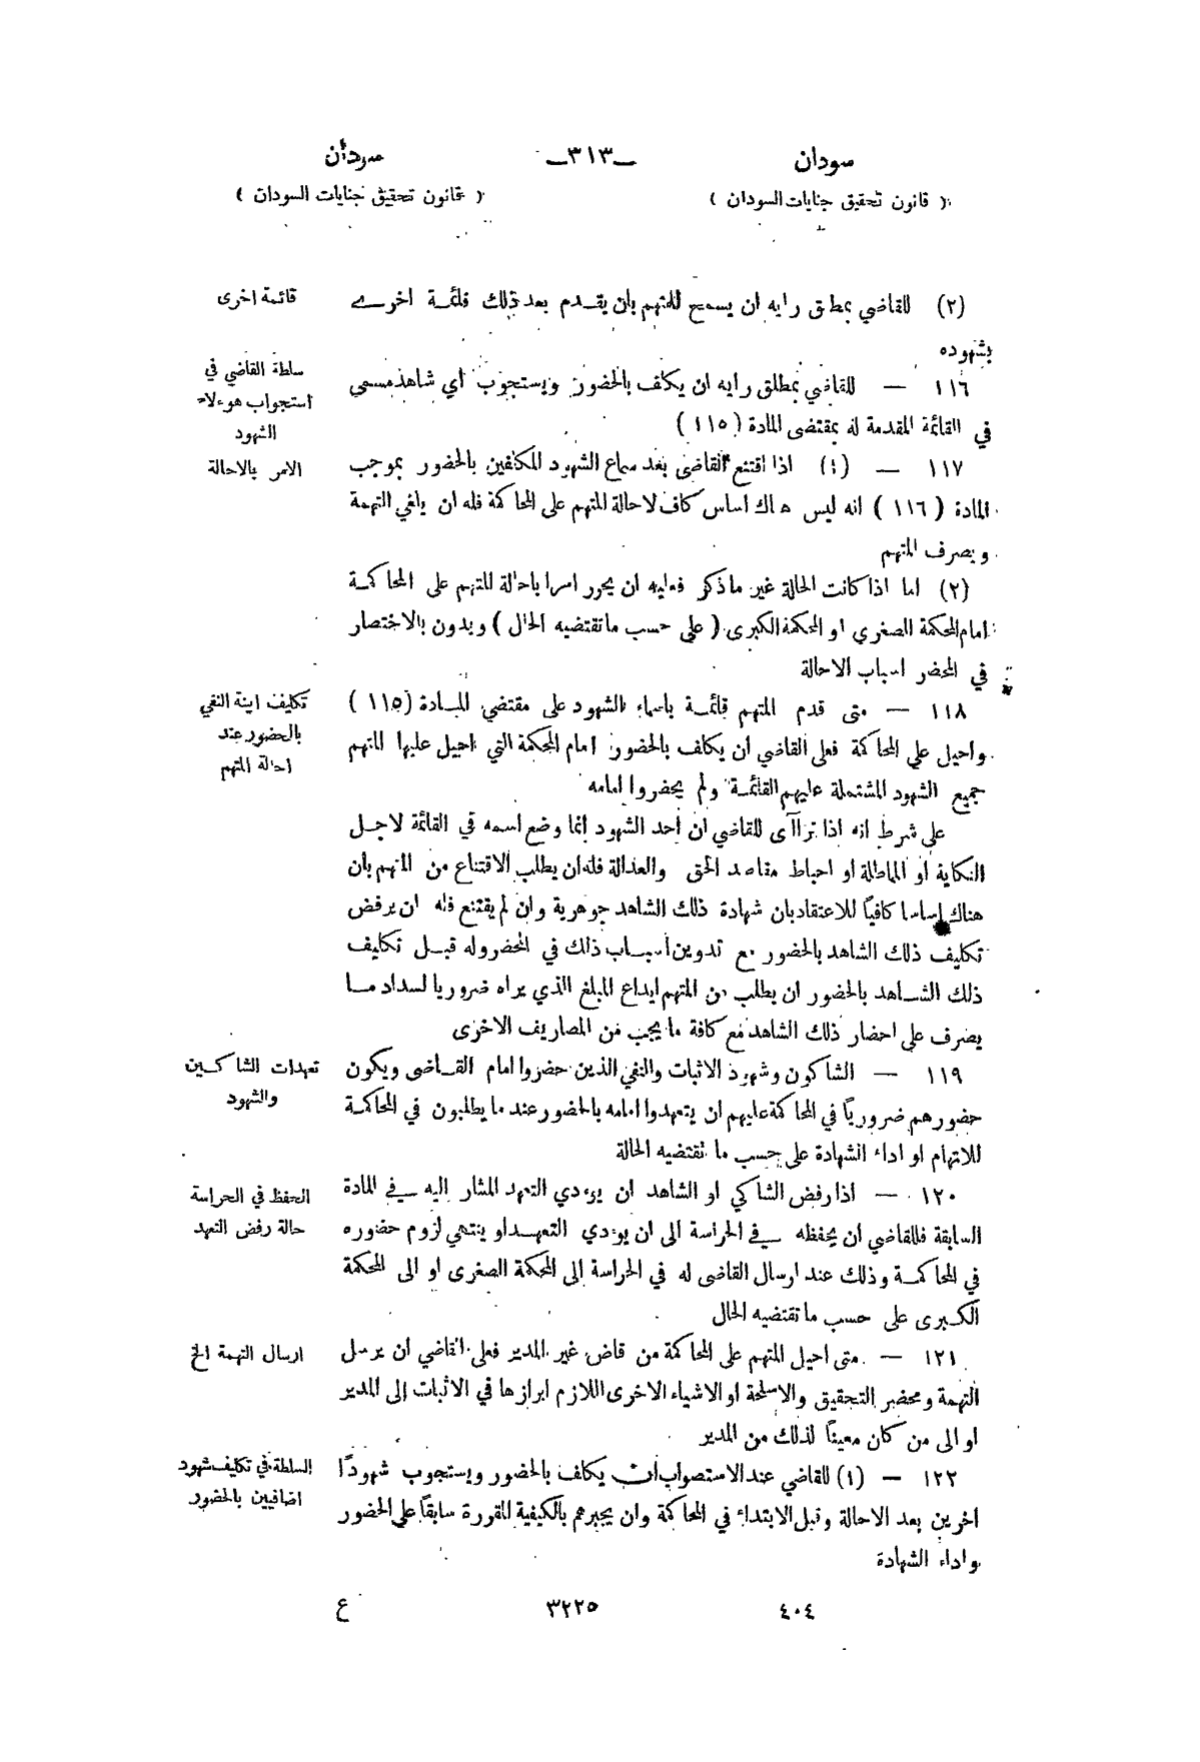 سودان —٣١٣— سودان
( قانون تحقيق جنايات السودان ) ( قانون تحقيق جنايات السودان )
(٢) للقاضي بمطلق رايه ان يسمح للمتهم بان يقدم بعد ذلك قائمة اخرى
قائمة اخرى
بشهوده
١١٦ — للقاضي بمطلق رايه ان يكلف بالحضور ويستجوب اي شاهد مسمى
سلطة القاضي في
استجواب هوءلاء
الشهود
في القائمة المقدمة له بمقتضى المادة (١١٥)
١١٧ — (١) اذا اقتنع القاضى بعد سماع الشهود المكلفين بالحضور بموجب
الامر بالاحالة
المادة (١١٦) انه ليس هناك اساس كاف لاحالة المتهم على المحاكمة فله ان يلغي التهمة
ويصرف المتهم
(٢) اما اذا كانت الحالة غير ما ذكر فعليه ان يحرر امرا باحالة المتهم على المحاكمة
امام المحكمة الصغرى او المحكمة الكبرى (على حسب ما تقتضيه الحال) ويدون بالاختصار
في المحضر اسباب الاحالة
١١٨ — متى قدم المتهم قائمة باسماء الشهود على مقتضي المادة (١١٥)
تكليف اينة النفي
بالحضور عند
احالة المتهم
واحيل على المحاكمة فعلى القاضي ان يكلف بالحضور امام المحكمة التي احيل عليها المتهم
جميع الشهود المشتملة عليهم القائمة ولم يحضروا امامه
على شرط انه اذا تراآى للقاضي ان احد الشهود انما وضع اسمه في القائمة لاجل
النكاية او المماطلة او احباط مقاصد الحق والعدالة فله ان يطلب الاقتناع من المتهم بان
هناك اساسا كافيًا للاعتقاد بان شهادة ذلك الشاهد جوهرية وان لم يقتنع فله ان يرفض
تكليف ذلك الشاهد بالحضور مع تدوين اسباب ذلك في المحضر وله قبل تكليف
ذلك الشاهد بالحضور ان يطلب من المتهم ايداع المبلغ الذي يراه ضروريا لسداد ما
يصرف على احضار ذلك الشاهد مع كافة ما يجب من المصاريف الاخرى
١١٩ — الشاكون وشهود الاثبات والنفي الذين حضروا امام القاضى ويكون
تعهدات الشاكين
والشهود
حضورهم ضروريًا في المحاكمة عليهم ان يتعهدوا امامه بالحضور عند ما يطلبون في المحاكمة
للاتهام او اداء الشهادة على حسب ما تقتضيه الحالة
١٢٠ — اذا رفض الشاكي او الشاهد ان يوءدي التعهد المشار اليه في المادة
الحفظ في الحراسة
حالة رفض التعهد
السابقة فللقاضي ان يحفظه في الحراسة الى ان يوءدي التعهد او ينتهي لزوم حضوره
في المحاكمة وذلك عند ارسال القاضى له في الحراسة الى المحكمة الصغرى او الى المحكمة
الكبرى على حسب ما تقتضيه الحال
١٢١ — متى احيل المتهم على المحاكمة من قاض غير المدير فعلى القاضي ان يرسل
ارسال التهمة الخ
التهمة ومحضر التحقيق والاسلحة او الاشياء الاخرى اللازم ابرازها في الاثبات الى المدير
او الى من كان معينًا لذلك من المدير
١٢٢ — (١) للقاضي عند الاستصواب ان يكلف بالحضور ويستجوب شهودًا
السلطة في تكليف شهود
اضافيين بالحضور
اخرين بعد الاحالة وقبل الابتداء في المحاكمة وان يجبرهم بالكيفية المقررة سابقًا على الحضور
واداء الشهادة
٤٠٤ ٣٢٢٥ ع